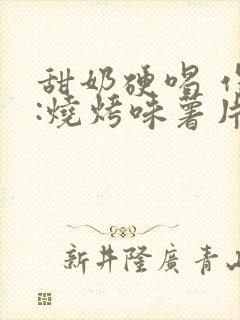 甜奶硬唱
:燒烤味薯片
新井隆廣青山